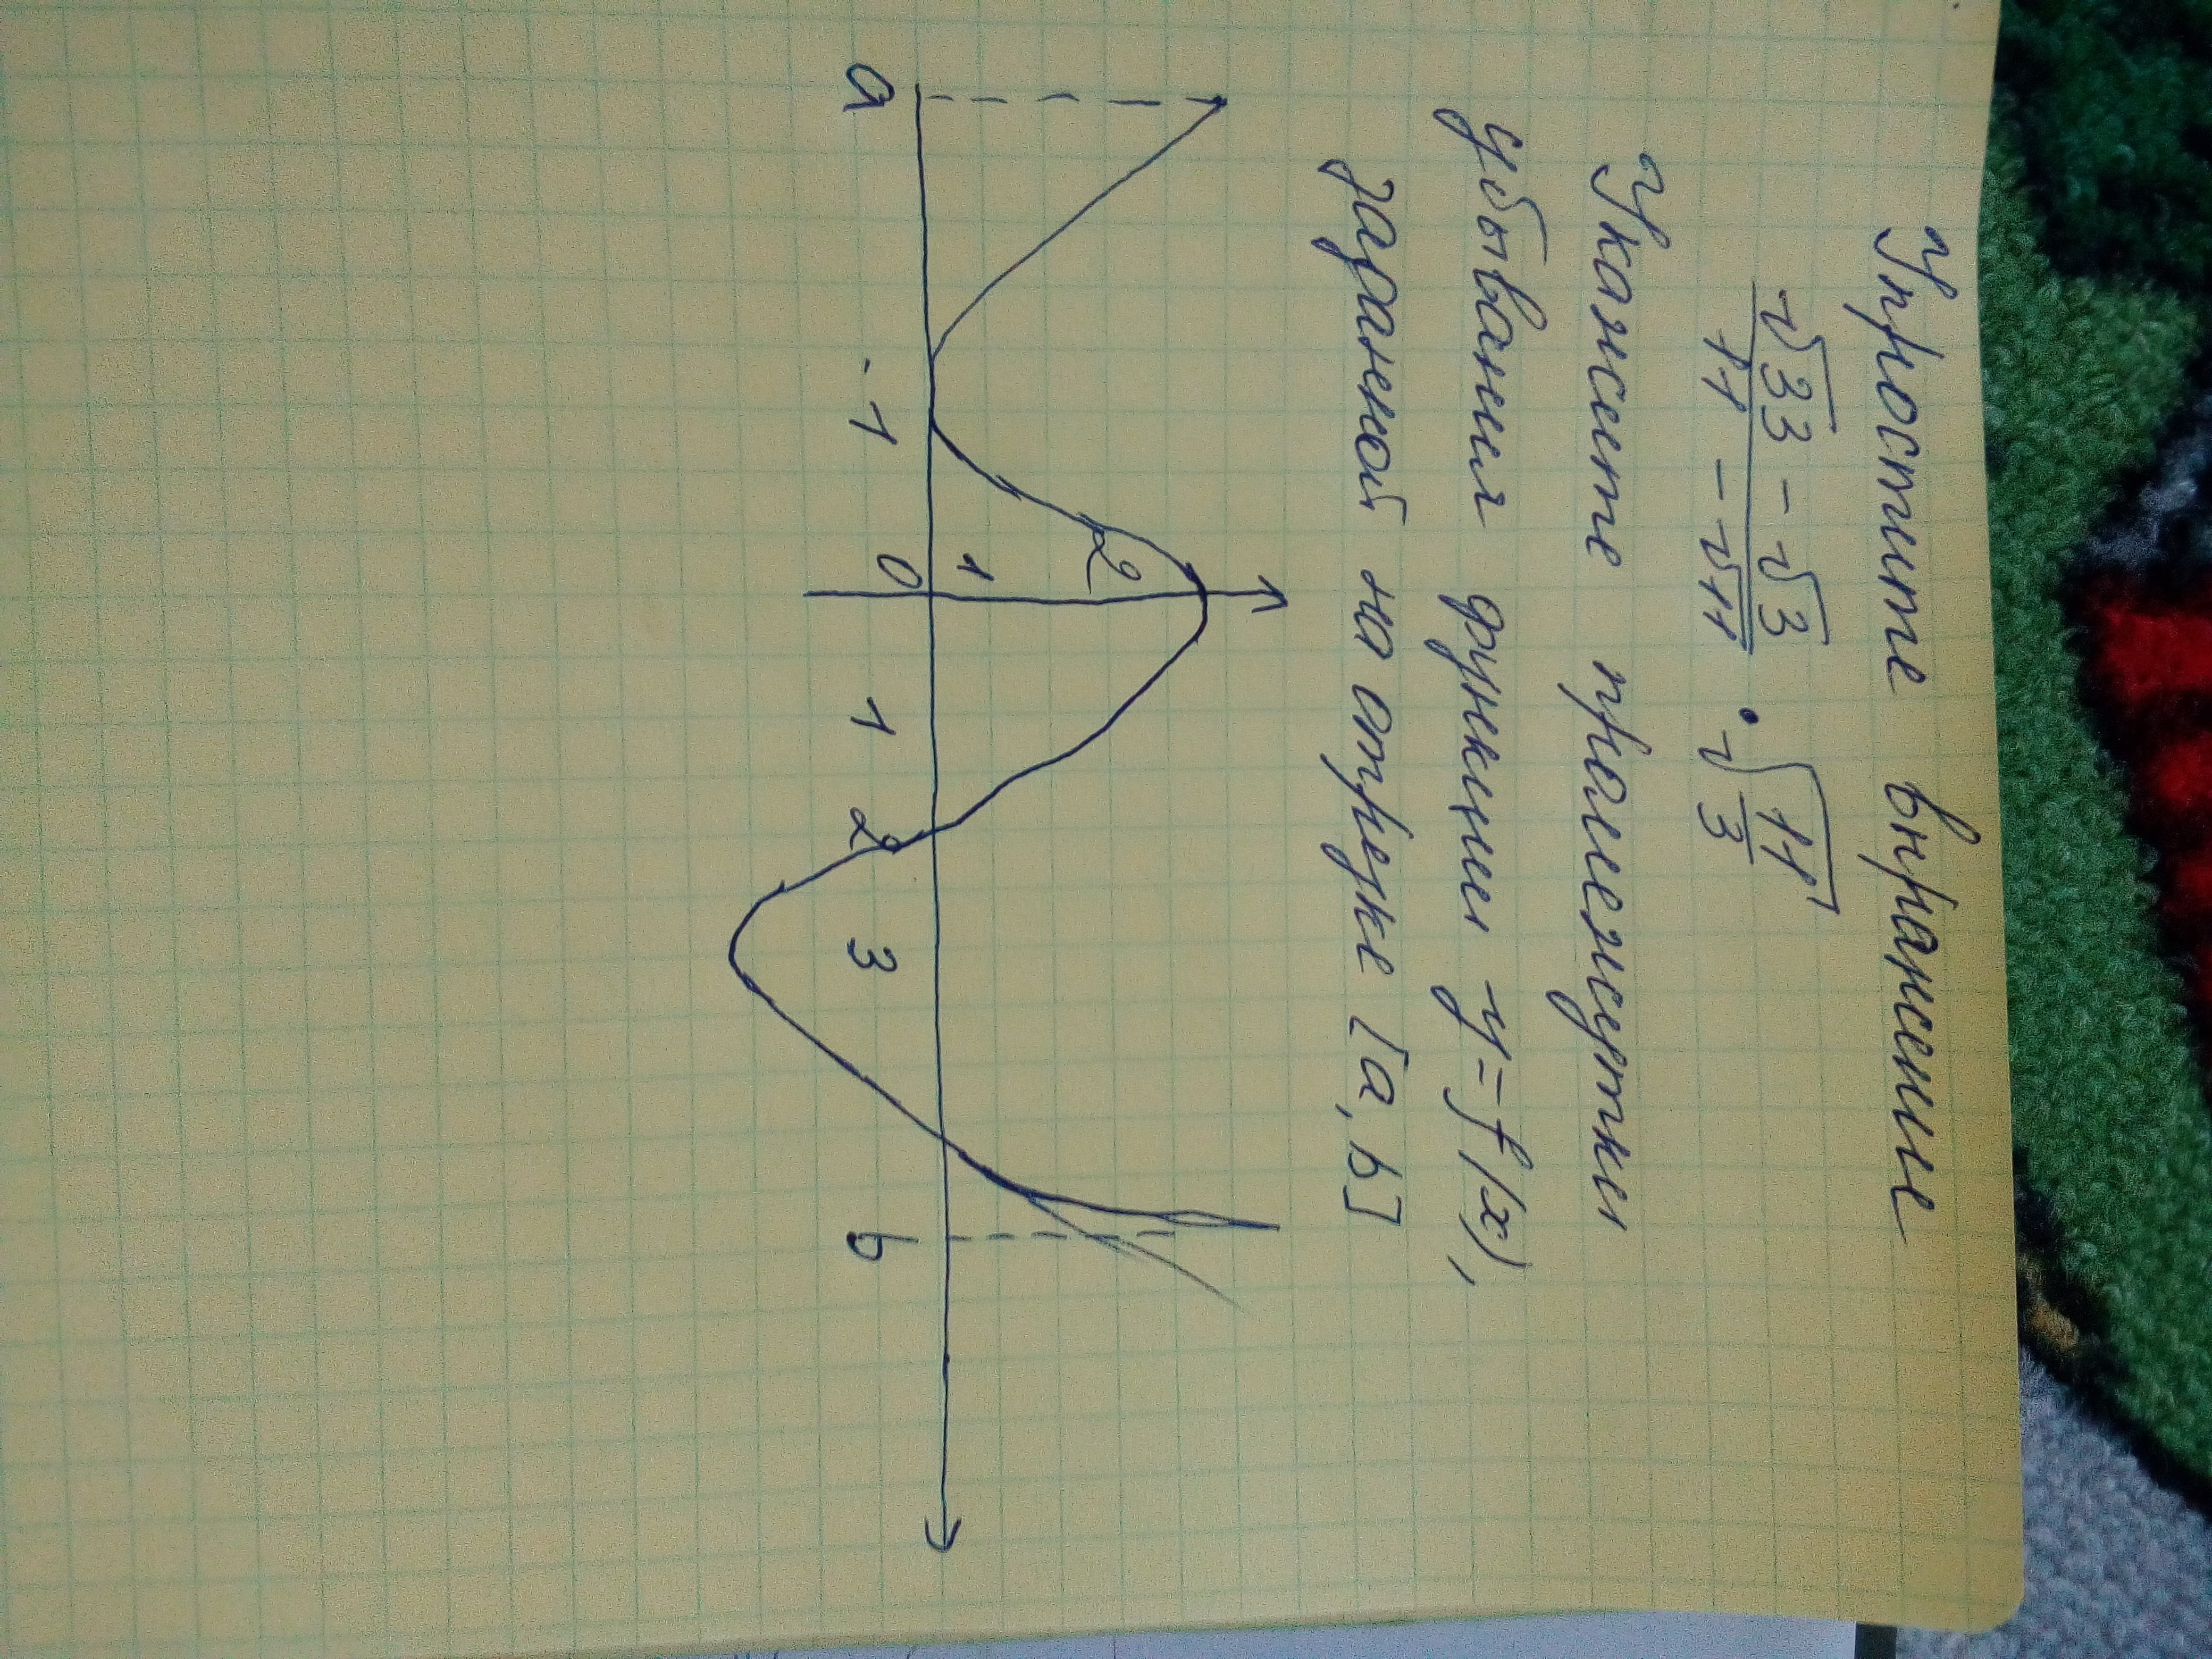 Упростите выражение
√33 - √3 / 11 - √11 · √11/3
Укажите промежутки
убывания функции y=f(x),
заданной на отрезке [a, b]
2
1
a -1 0 1 2 3 b